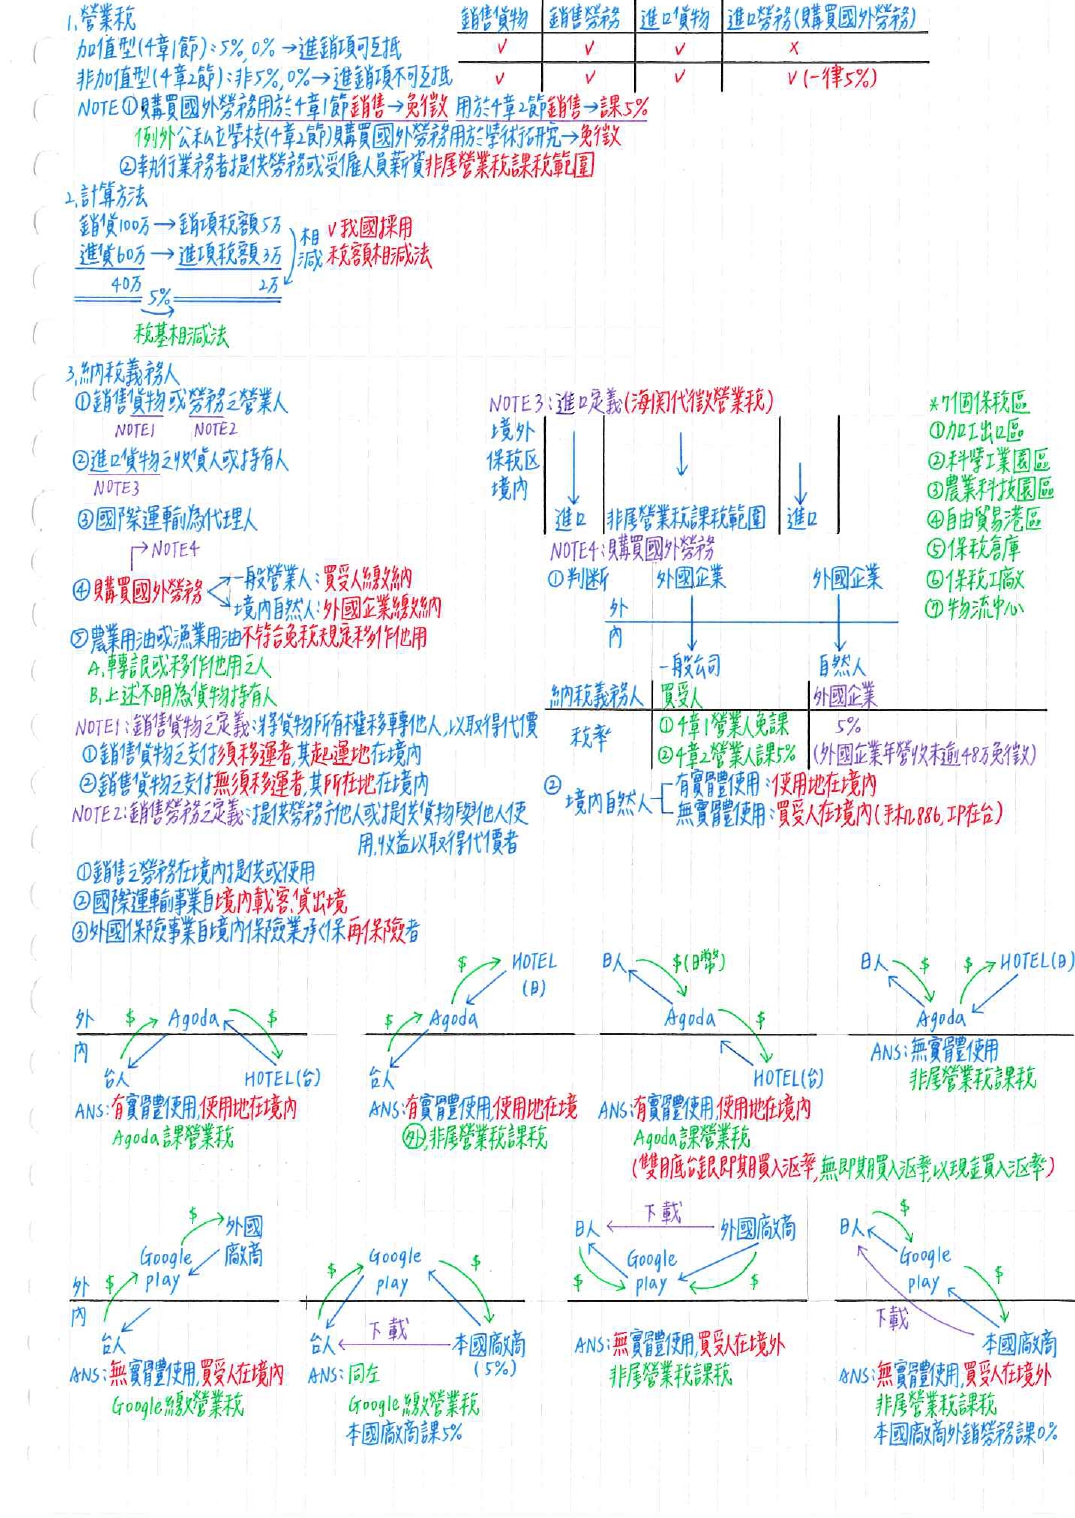 1.營業稅
銷售貨物 銷售勞務 進口貨物 進口勞務(購買國外勞務)
加值型(4章1節):5%,0%→進銷項可互抵 v v v x
非加值型(4章2節):非5%,0%→進銷項不可互抵 v v v v(一律5%)
NOTE①購買國外勞務用於4章1節銷售→免徵 用於4章2節銷售→課5%
例外公私立學校(4章2節)購買國外勞務用於學術研究→免徵
②執行業務者提供勞務或受僱人員薪資非屬營業稅課稅範圍
2.計算方法
銷貨100万→銷項稅額5万
進貨60万→進項稅額3万
40万 2万
5%
相減
v我國採用
稅額相減法
稅基相減法
3.納稅義務人
①銷售貨物或勞務之營業人
NOTE1 NOTE2
②進口貨物之收貨人或持有人
NOTE3
③國際運輸為代理人
→NOTE4
④購買國外勞務
一般營業人:買受人繳納
境內自然人:外國企業繳納
⑤農業用油或漁業用油不符合免稅規定移作他用
A.轉讓或移作他用之人
B.上述不明為貨物持有人
NOTE1:銷售貨物之定義:將貨物所有權移轉他人,以取得代價
①銷售貨物之交付須移運者,其起運地在境內
②銷售貨物之交付無須移運者,其所在地在境內
NOTE2:銷售勞務之定義:提供勞務予他人或提供貨物與他人使
用,收益以取得代價者
①銷售之勞務在境內提供或使用
②國際運輸事業自境內載客,貨出境
③外國保險事業自境內保險業承保再保險者
NOTE3:進口定義(海関代徵營業稅)
境外
保稅区
境內
進口 非屬營業稅課稅範圍 進口
*7個保稅區
①加工出口區
②科學工業園區
③農業科技園區
④自由貿易港區
⑤保稅倉庫
⑥保稅工廠
⑦物流中心
NOTE4:購買國外勞務
①判断 外國企業 外國企業
外
內
一般公司 自然人
納稅義務人 買受人 外國企業
稅率 ①4章1營業人免課 5%
②4章2營業人課5% (外國企業年營收未逾48万免徵)
②境內自然人
有實體使用:使用地在境內
無實體使用:買受人在境內(手机886,IP在台)
外
內
$ Agoda $
台人 HOTEL(台)
ANS:有實體使用,使用地在境內
Agoda課營業稅
$ HOTEL
(日)
$ Agoda
台人
ANS:有實體使用,使用地在境
外,非屬營業稅課稅
日人 $(日幣)
Agoda $
HOTEL(台)
ANS:有實體使用,使用地在境內
Agoda課營業稅
(雙月底台銀即期買入滙率,無即期買入滙率,以現金買入滙率)
日人 $ $ HOTEL(日)
Agoda
ANS:無實體使用
非屬營業稅課稅
外
內
$ 外國
廠商
Google
play
$
台人
ANS:無實體使用,買受人在境內
Google繳營業稅
$ Google
play $
台人 下載 本國廠商
(5%)
ANS:同左
Google繳營業稅
本國廠商課5%
日人 下載 外國廠商
Google
play
$ $
ANS:無實體使用,買受人在境外
非屬營業稅課稅
$
日人
Google
play $
下載
本國廠商
ANS:無實體使用,買受人在境外
非屬營業稅課稅
本國廠商外銷勞務課0%